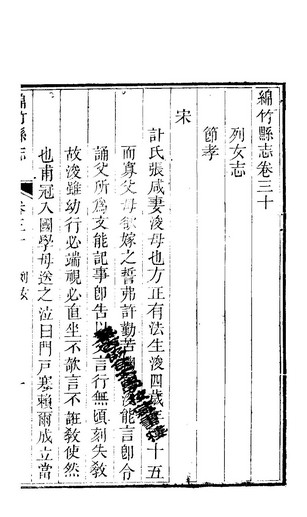 綿竹縣志卷三十
列女志
節孝
宋
計氏張咸妻浚母也方正有法生浚四歲 十五
而寡父母欲嫁之誓弗許勤苦 浚能言卽令
誦父所爲文能記事卽告以父言行無頃刻失教
故浚雖幼行必端視必直坐不欹言不誑教使然
也甫冠入國學母送之泣曰門戶寒賴爾成立當
綿竹縣志
卷三十
列女
一